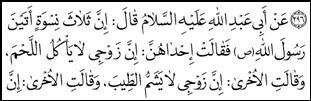 ٤٩٦ عَنْ أَبِي عَبْدِ اللَّهِ عَلَيْهِ السَّلَامُ قَالَ: إِنَّ ثَلَاثَ نِسْوَةٍ أَتَيْنَ
رَسُولَ اللَّهِ (ص) فَقَالَتْ إِحْدَاهُنَّ: إِنَّ زَوْجِي لَا يَأْكُلُ اللَّحْمَ،
وَقَالَتِ الْأُخْرَىٰ: إِنَّ زَوْجِي لَا يَشَمُّ الطِّيبَ، وَقَالَتِ الْأُخْرَىٰ: إِنَّ